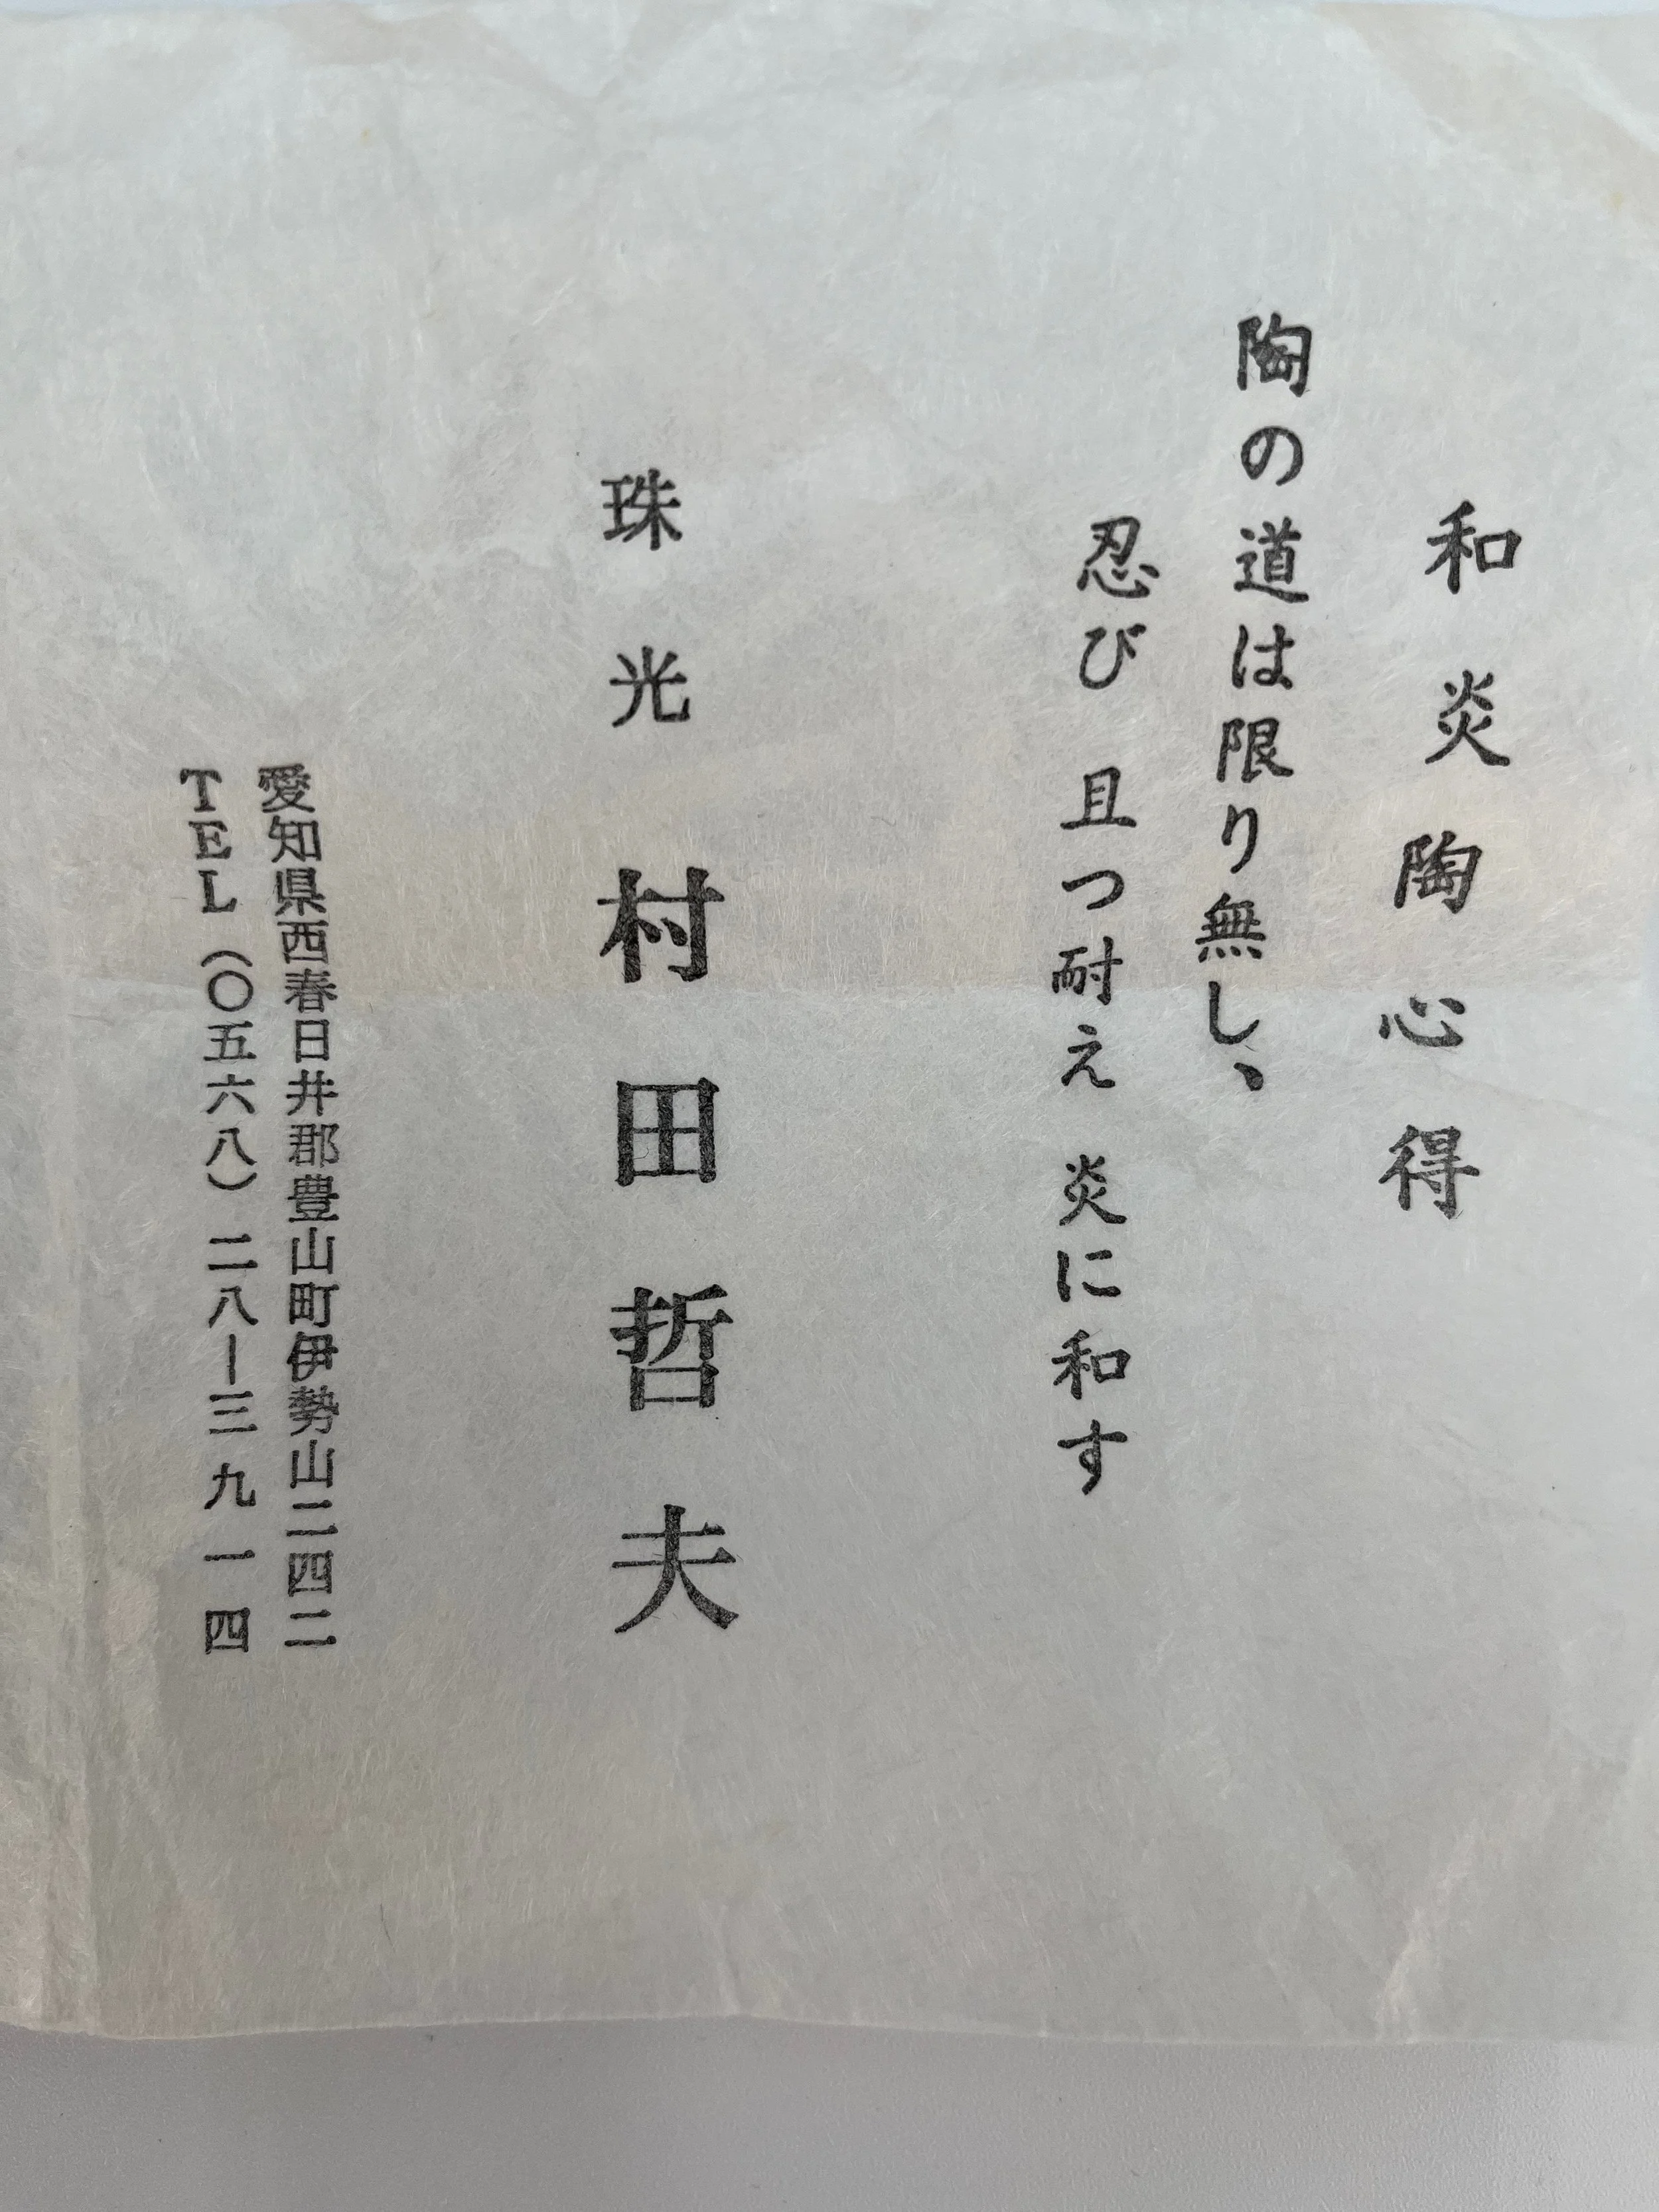 和炎陶心得
陶の道は限り無し、
忍び 且つ耐え 炎に和す
珠光 村田哲夫
愛知県西春日井郡豊山町伊勢山二四二
TEL(〇五六八)二八ー三九一四